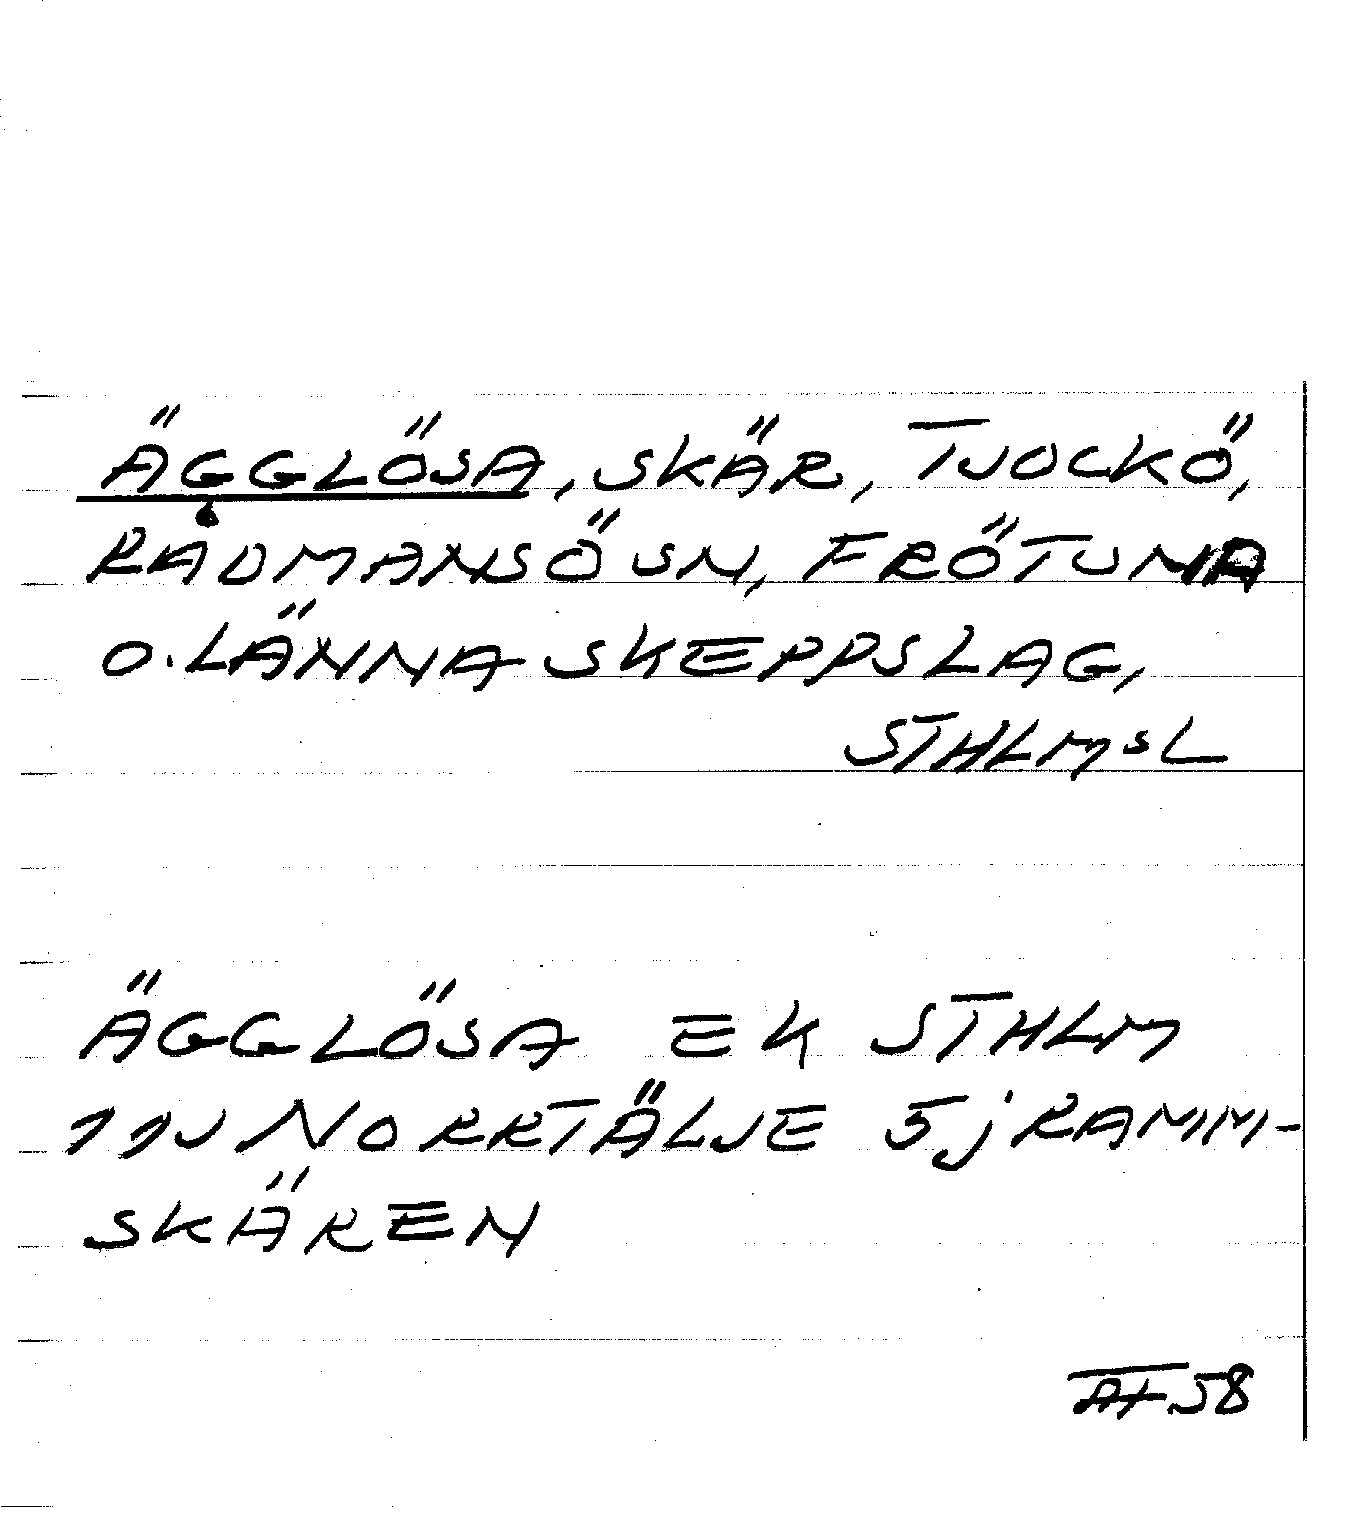 ÄGGLÖSA, SKÄR, TJOCKÖ,
RÅDMANSÖ SN, FRÖTUNA
O. LÄNNA SKEPPSLAG,
STHLMSL
ÄGGLÖSA EK STHLM
11J NORRTÄLJE 5j RAMM-
SKÄREN
58